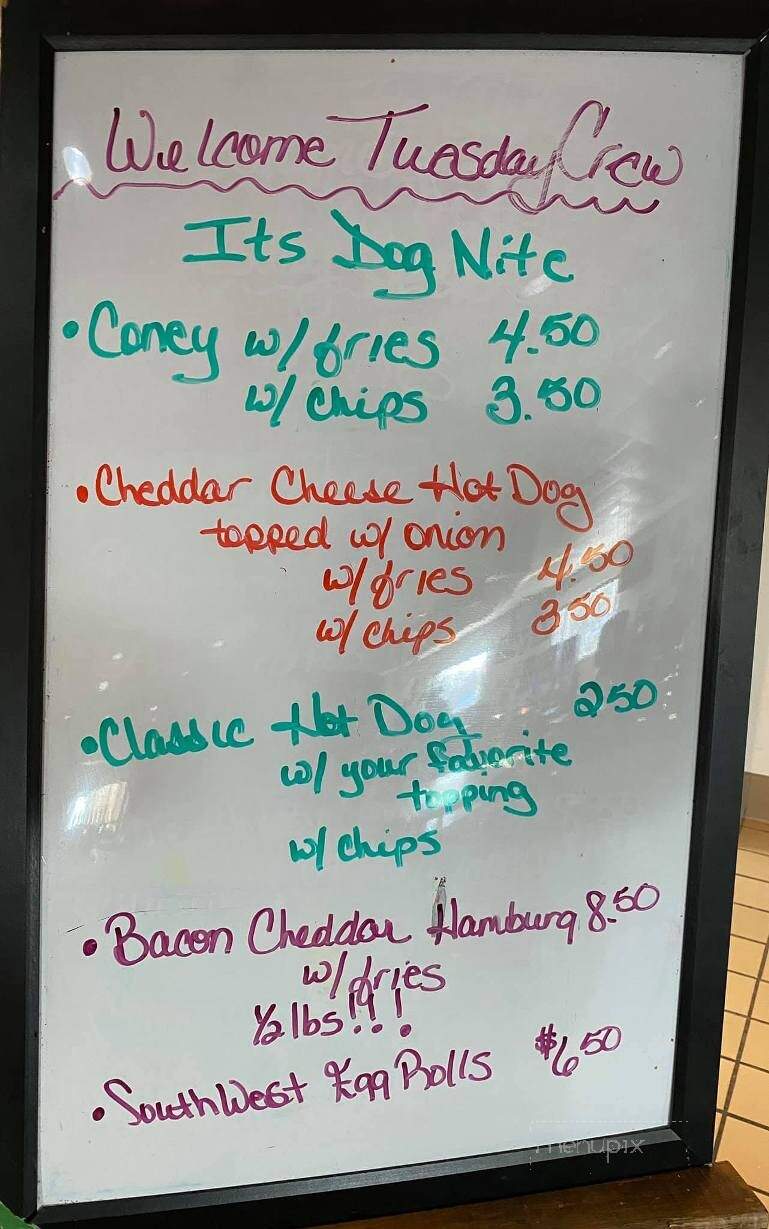 Welcome Tuesday Crew
Its Dog Nite
• Coney w/ fries 4.50
w/ chips 3.50
• Cheddar Cheese Hot Dog
topped w/ onion
w/ fries 4.50
w/ chips 3.50
• Classic Hot Dog 2.50
w/ your favorite
topping
w/ chips
• Bacon Cheddar Hamburg 8.50
w/ fries
½ lbs!!!
• SouthWest Egg Rolls $6.50
menupix